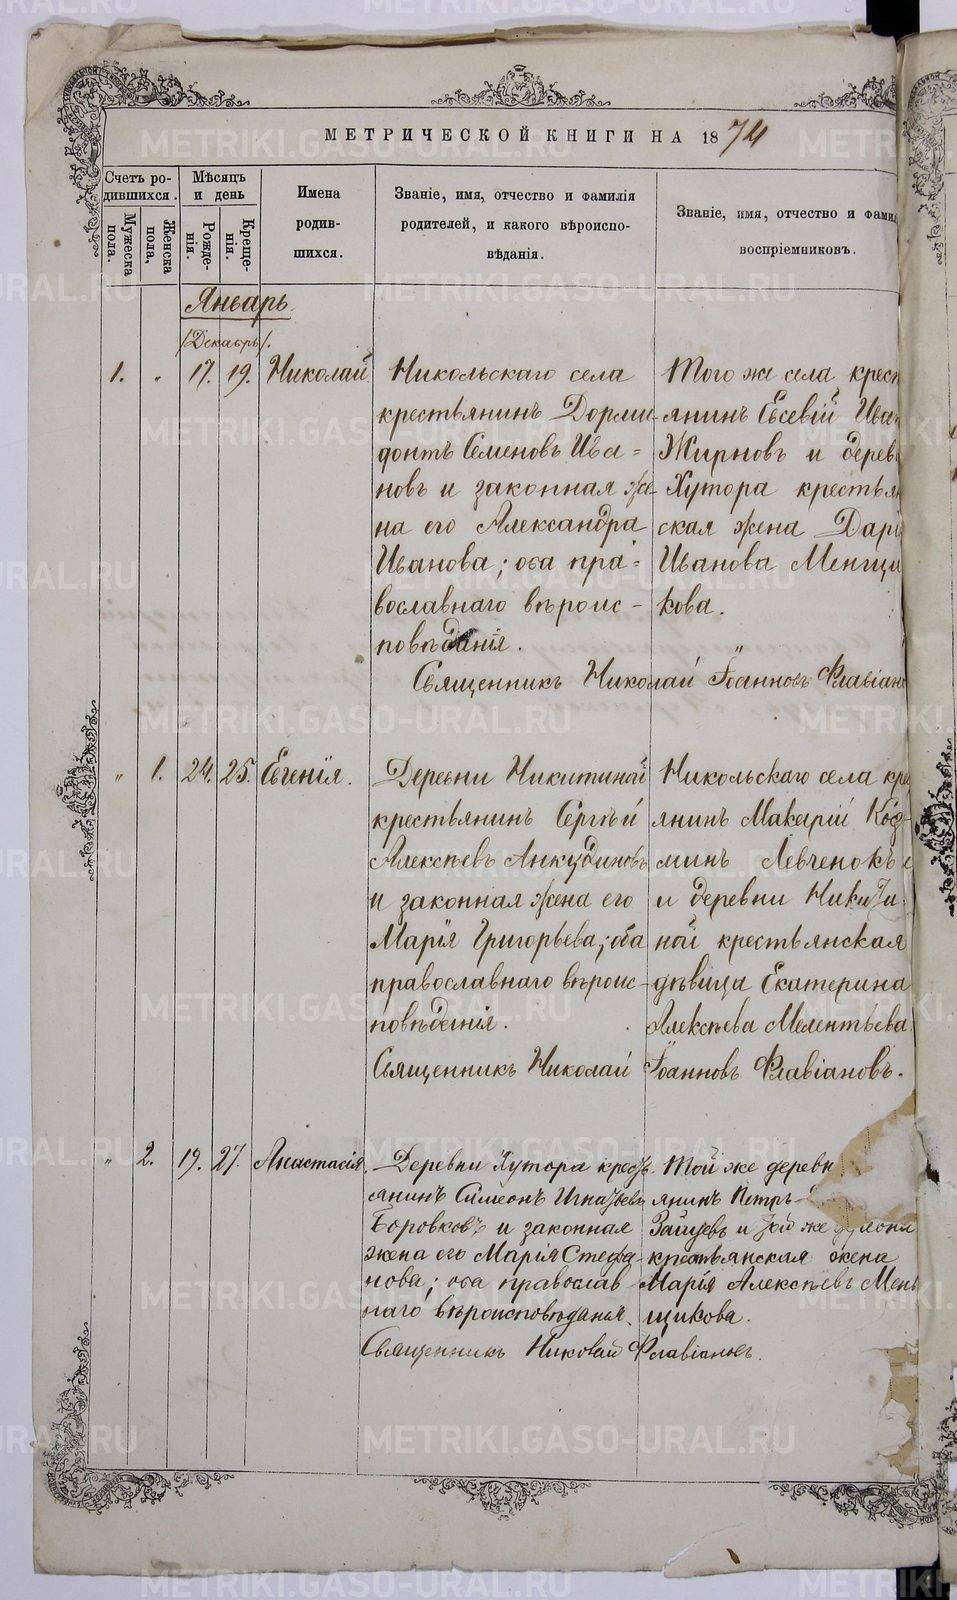 МЕТРИЧЕСКОЙ КНИГИ НА 1874
Счетъ ро-
дившихся.
Мужеска
пола.
Женска
пола,
Мѣсяцъ
и день
Рожде-
нія.
Креще-
нія.
Имена
родив-
шихся.
Званіе, имя, отчество и фамилія
родителей, и какого вѣроиспо-
вѣданія.
Званіе, имя, отчество и фами
воспріемниковъ.
Январь
/Декабрь/.
1. " 17. 19. Николай
Никольскаго села
крестьянинъ Дорми
донтъ Семеновъ Ива=
новъ и законная же-
на его Александра
Иванова; оба пра=
вославнаго вѣроис-
повѣданія.
Того же села крест
янинъ Евсевій Иван
Жирновъ и дерев
Хутора крестьян
ская жена Дарь
Иванова Менщи
кова.
Священникъ Николай Іоанновъ Флавіан
" 1. 24. 25. Евгенія.
Деревни Никитиной
крестьянинъ Сергѣй
Алексѣевъ Анкудиновъ
и законная жена его
Марія Григорьева; оба
православнаго вѣроис-
повѣданія.
Никольскаго села кре
янинъ Макарій Коз-
минъ Левченокъ
и деревни Никити
ной крестьянская
дѣвица Екатерина
Алексѣева Мелентьева.
Священникъ Николай Іоанновъ Флавіановъ.
" 2. 19. 27. Анастасія.
Деревни Хутора крестъ
янинъ Симеонъ Игнатьевъ
Боровковъ и законная
жена его Марія Стефа-
нова; оба православ-
наго вѣроисповѣданія.
Той же деревн
янинъ Петръ
Зайцевъ и той же
крестьянская жена
Марія Алексѣевъ Мень
щикова.
Священникъ Николай Флавіановъ.